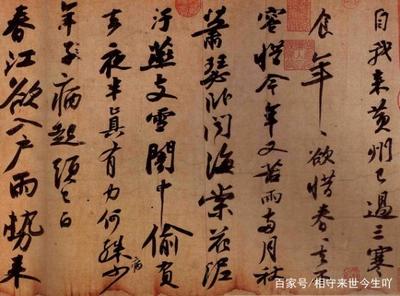 自我来黃州已過三寒
食年〻欲惜春〻去不
容惜今年又苦雨兩月秋
蕭瑟卧聞海棠花泥
汙燕支雪闇中偷負
去夜半真有力何殊病少
年子病起頭已白
春江欲入戶雨勢来
百家号/相守来世今生吖